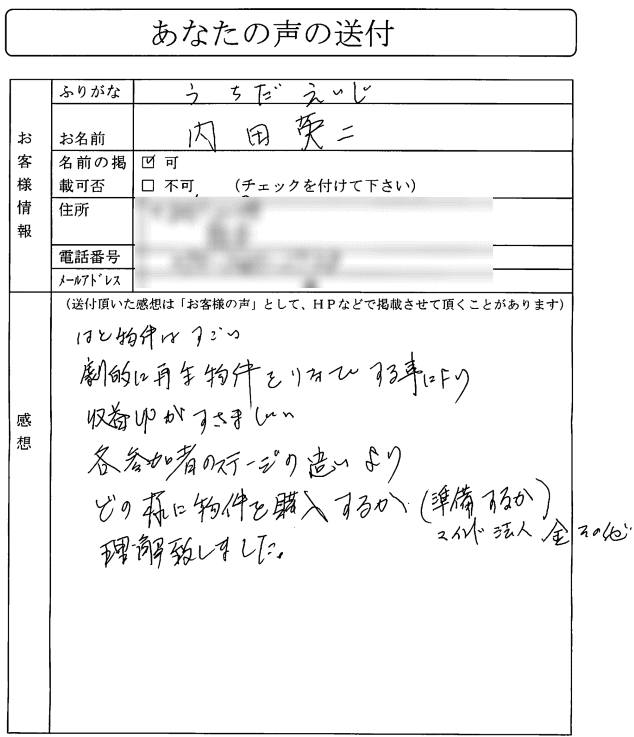 あなたの声の送付
お客様情報
ふりがな
うちだえいじ
お名前
内田英二
名前の掲載可否
☑ 可
☐ 不可 (チェックを付けて下さい)
住所
電話番号
メールアドレス
感想
(送付頂いた感想は「お客様の声」として、HPなどで掲載させて頂くことがあります)
はと物件はすごい
劇的に再生物件をリフォームする事により
収益UPがすさまじい
各参加者のステージの違いより
どの様に物件を購入するか(準備するか)
マインド 法人 金 その他
理解致しました。